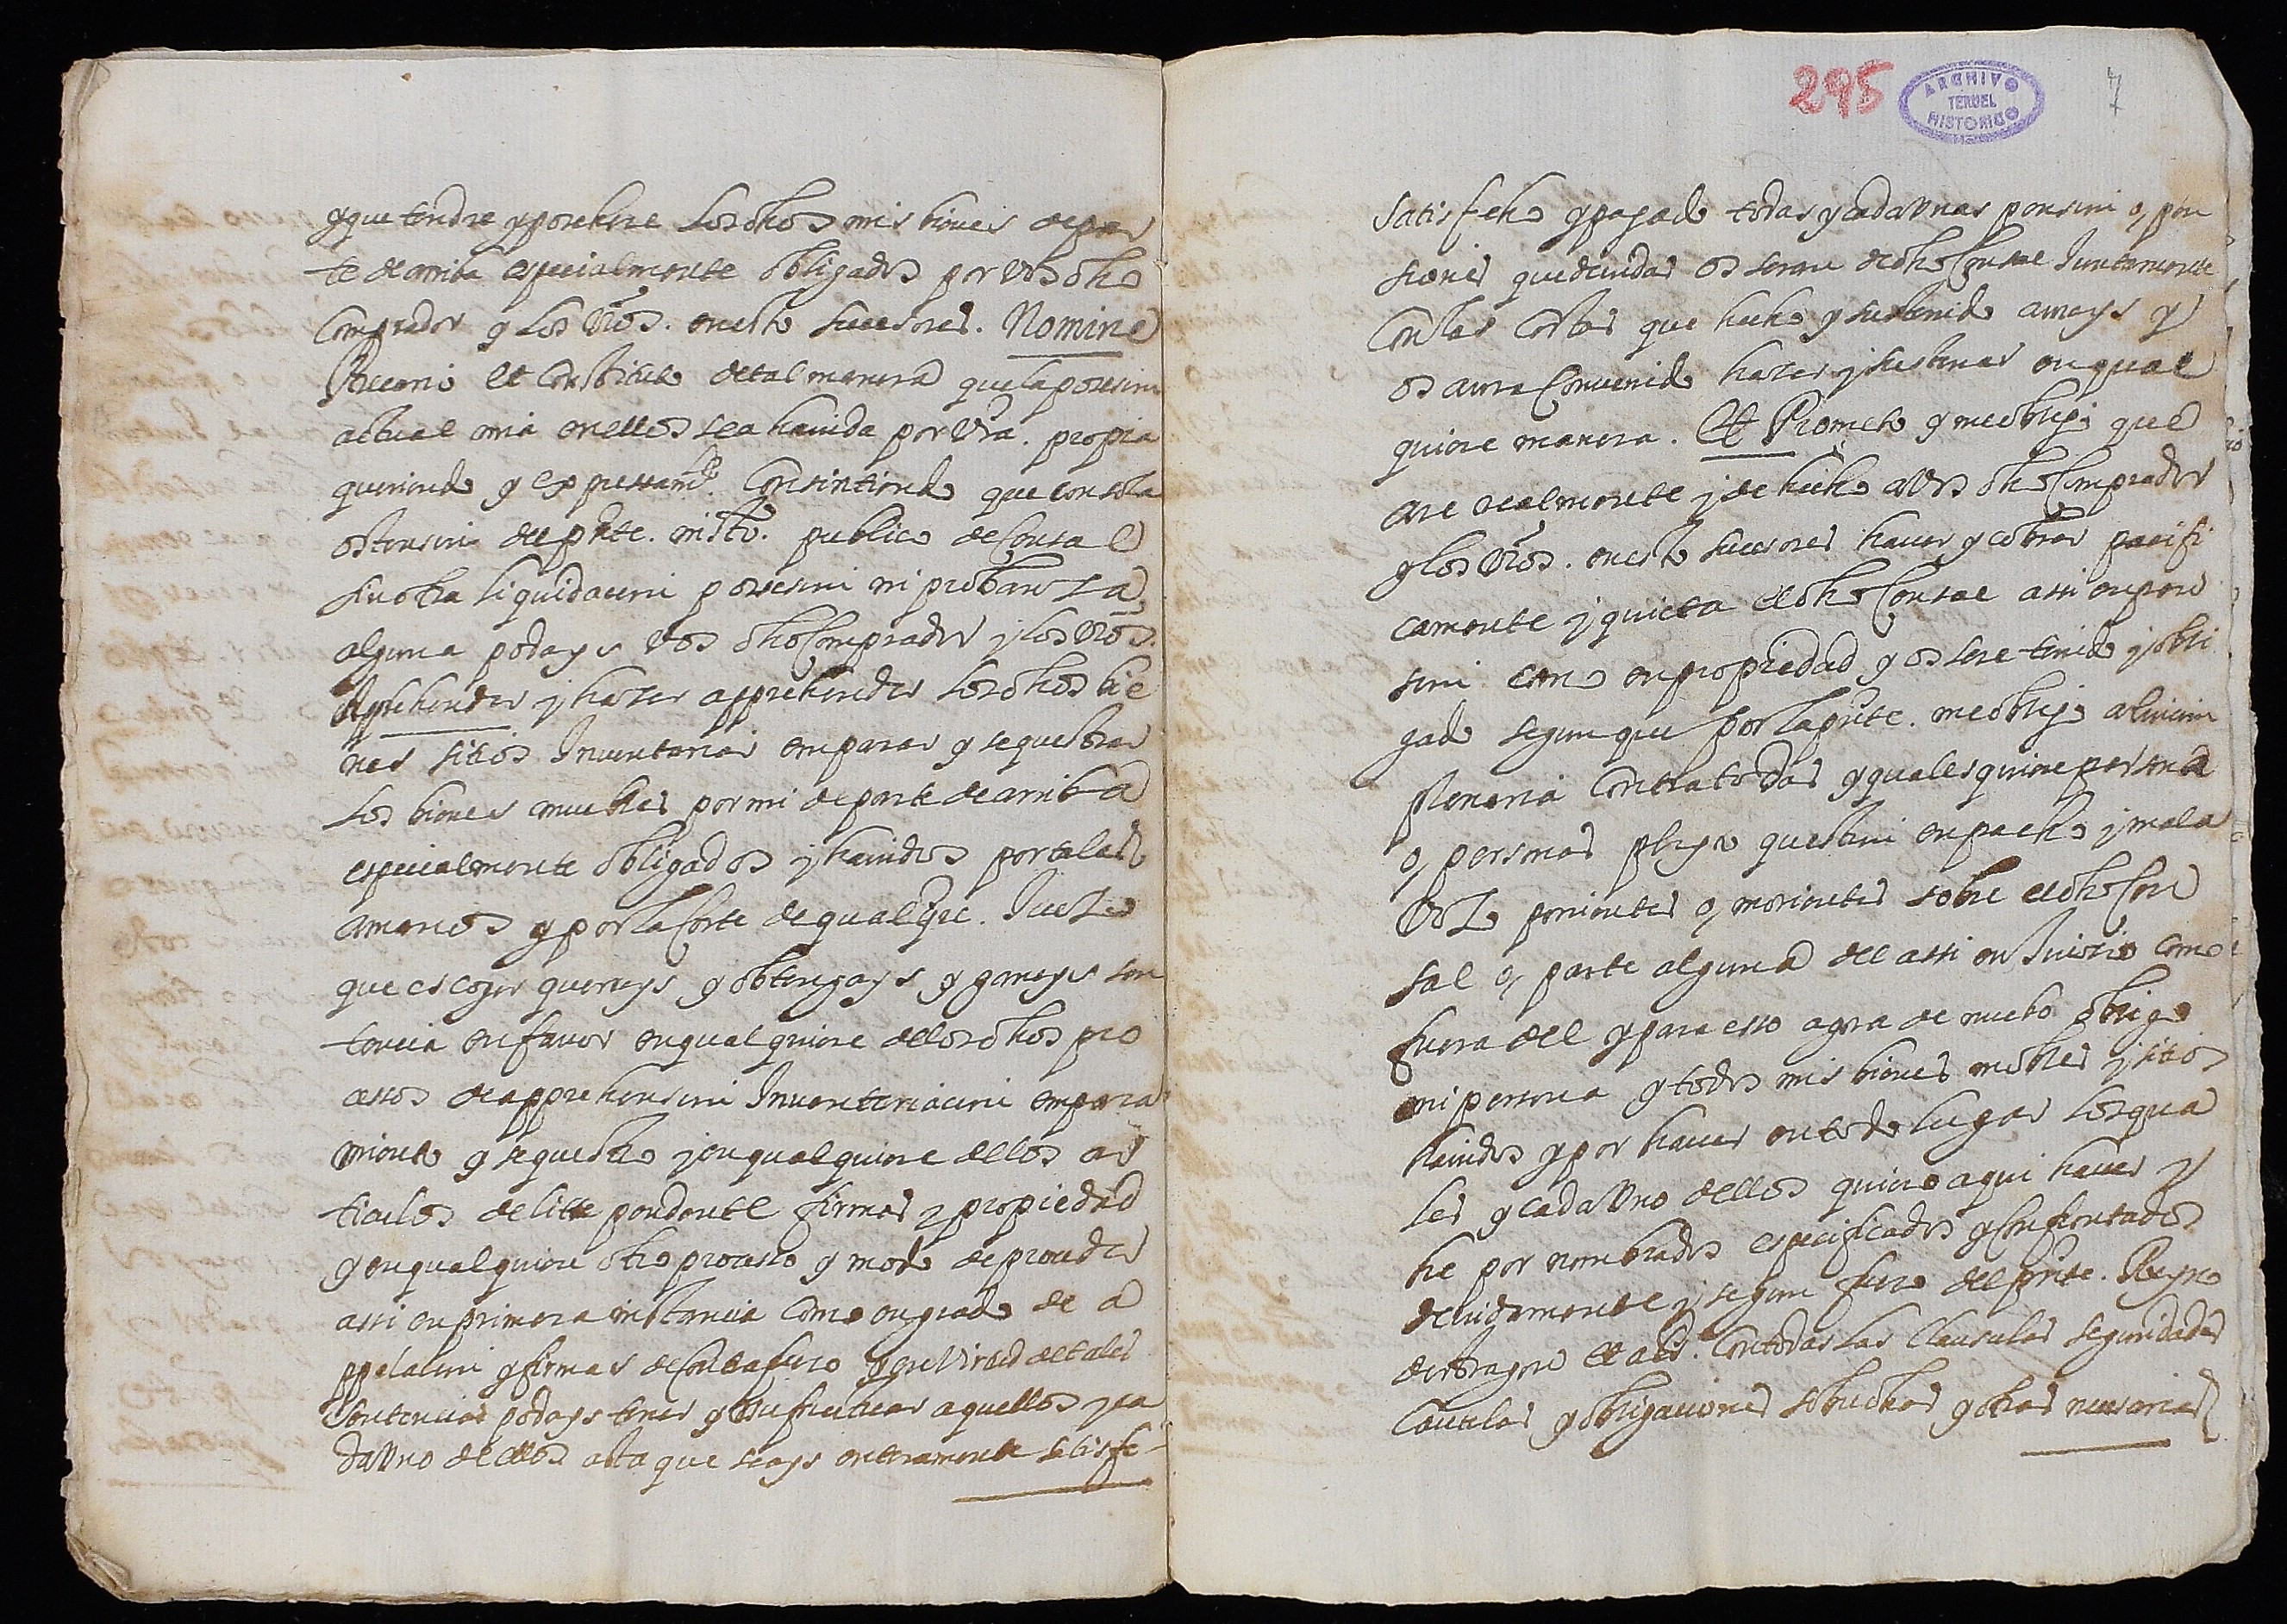 y que tendre y posehere los dhos mis bienes de par
te de arriba especialmente obligados por vos dho
comprador y los vros. en esto sucesores. Nomine
Precario et constituto de tal manera que la posesion
actual mia en ellos sea hauida por vra. propia
queriendo y expressamte. consintiendo que con sola
ostension del pnte. insto. publico de Censal
sin otra liquidacion posesion ni probanza
alguna podays vos dho comprador y los vros.
Apprehender y hazer apprehender los dhos bie
nes sitios Inuentariar emparar y sequestrar
los bienes muebles por mi de parte de arriba
especialmente obligados y hauidos por tales
a manos y por la Corte de qualqre. Juez
que escoger querays y obtengays y ganeys sen
tencia en fauor en qualquiere de los dhos pro
cessos de apprehension Inuentariacion empara
miento y sequestro y en qualquiere dellos ar
ticulos de lite pendente firmas y propiedad
y en qualquiere otro processo y modo de proceder
assi en primera instancia como en grado de a
ppelacion y firmas de contrafuero y en virtud de tales
sentencias podays tener y usufructuar aquellos y ca
da vno de ellos asta que seays enteramente satisfe-
295
ARCHIVO
TERUEL
HISTORICO
7
satisfecho y pagado todas y cada vnas pension o, pen
siones que deuidas os seran de dho Censal Juntamente
con las costas que hecho y sustenido aureys y
os aura conuenido hazer y sustener en qual
quiere manera. Et Prometo y me obligo que
are realmente y de hecho a vos dho comprador
y los vros. en esto sucesores hauer y cobrar pacifi
camente y quieta el dho Censal assi en pen
sion como en propiedad y os sere tenido y obli
gado segun que por la pnte. me obligo a euiccion
Plenaria contra todas y qualesquiere persona
o, personas pleyto question empacho y mala
voz ponientes o, mouientes sobre el dho Cen
sal o, parte alguna del assi en Juizio como
fuera del y para esso agora de nuebo obligo
mi persona y todos mis bienes mobles y sitios
hauidos y por hauer en todo lugar los qua
les y cada vno dellos quiero aqui hauer y
he por nombrados especificados y confrontados
deuidamente y segun fuero del pnte. Reyno
de Aragon et als. con todas las clausulas seguridades
cautelas y obligaciones sobredhas y otras necesarias